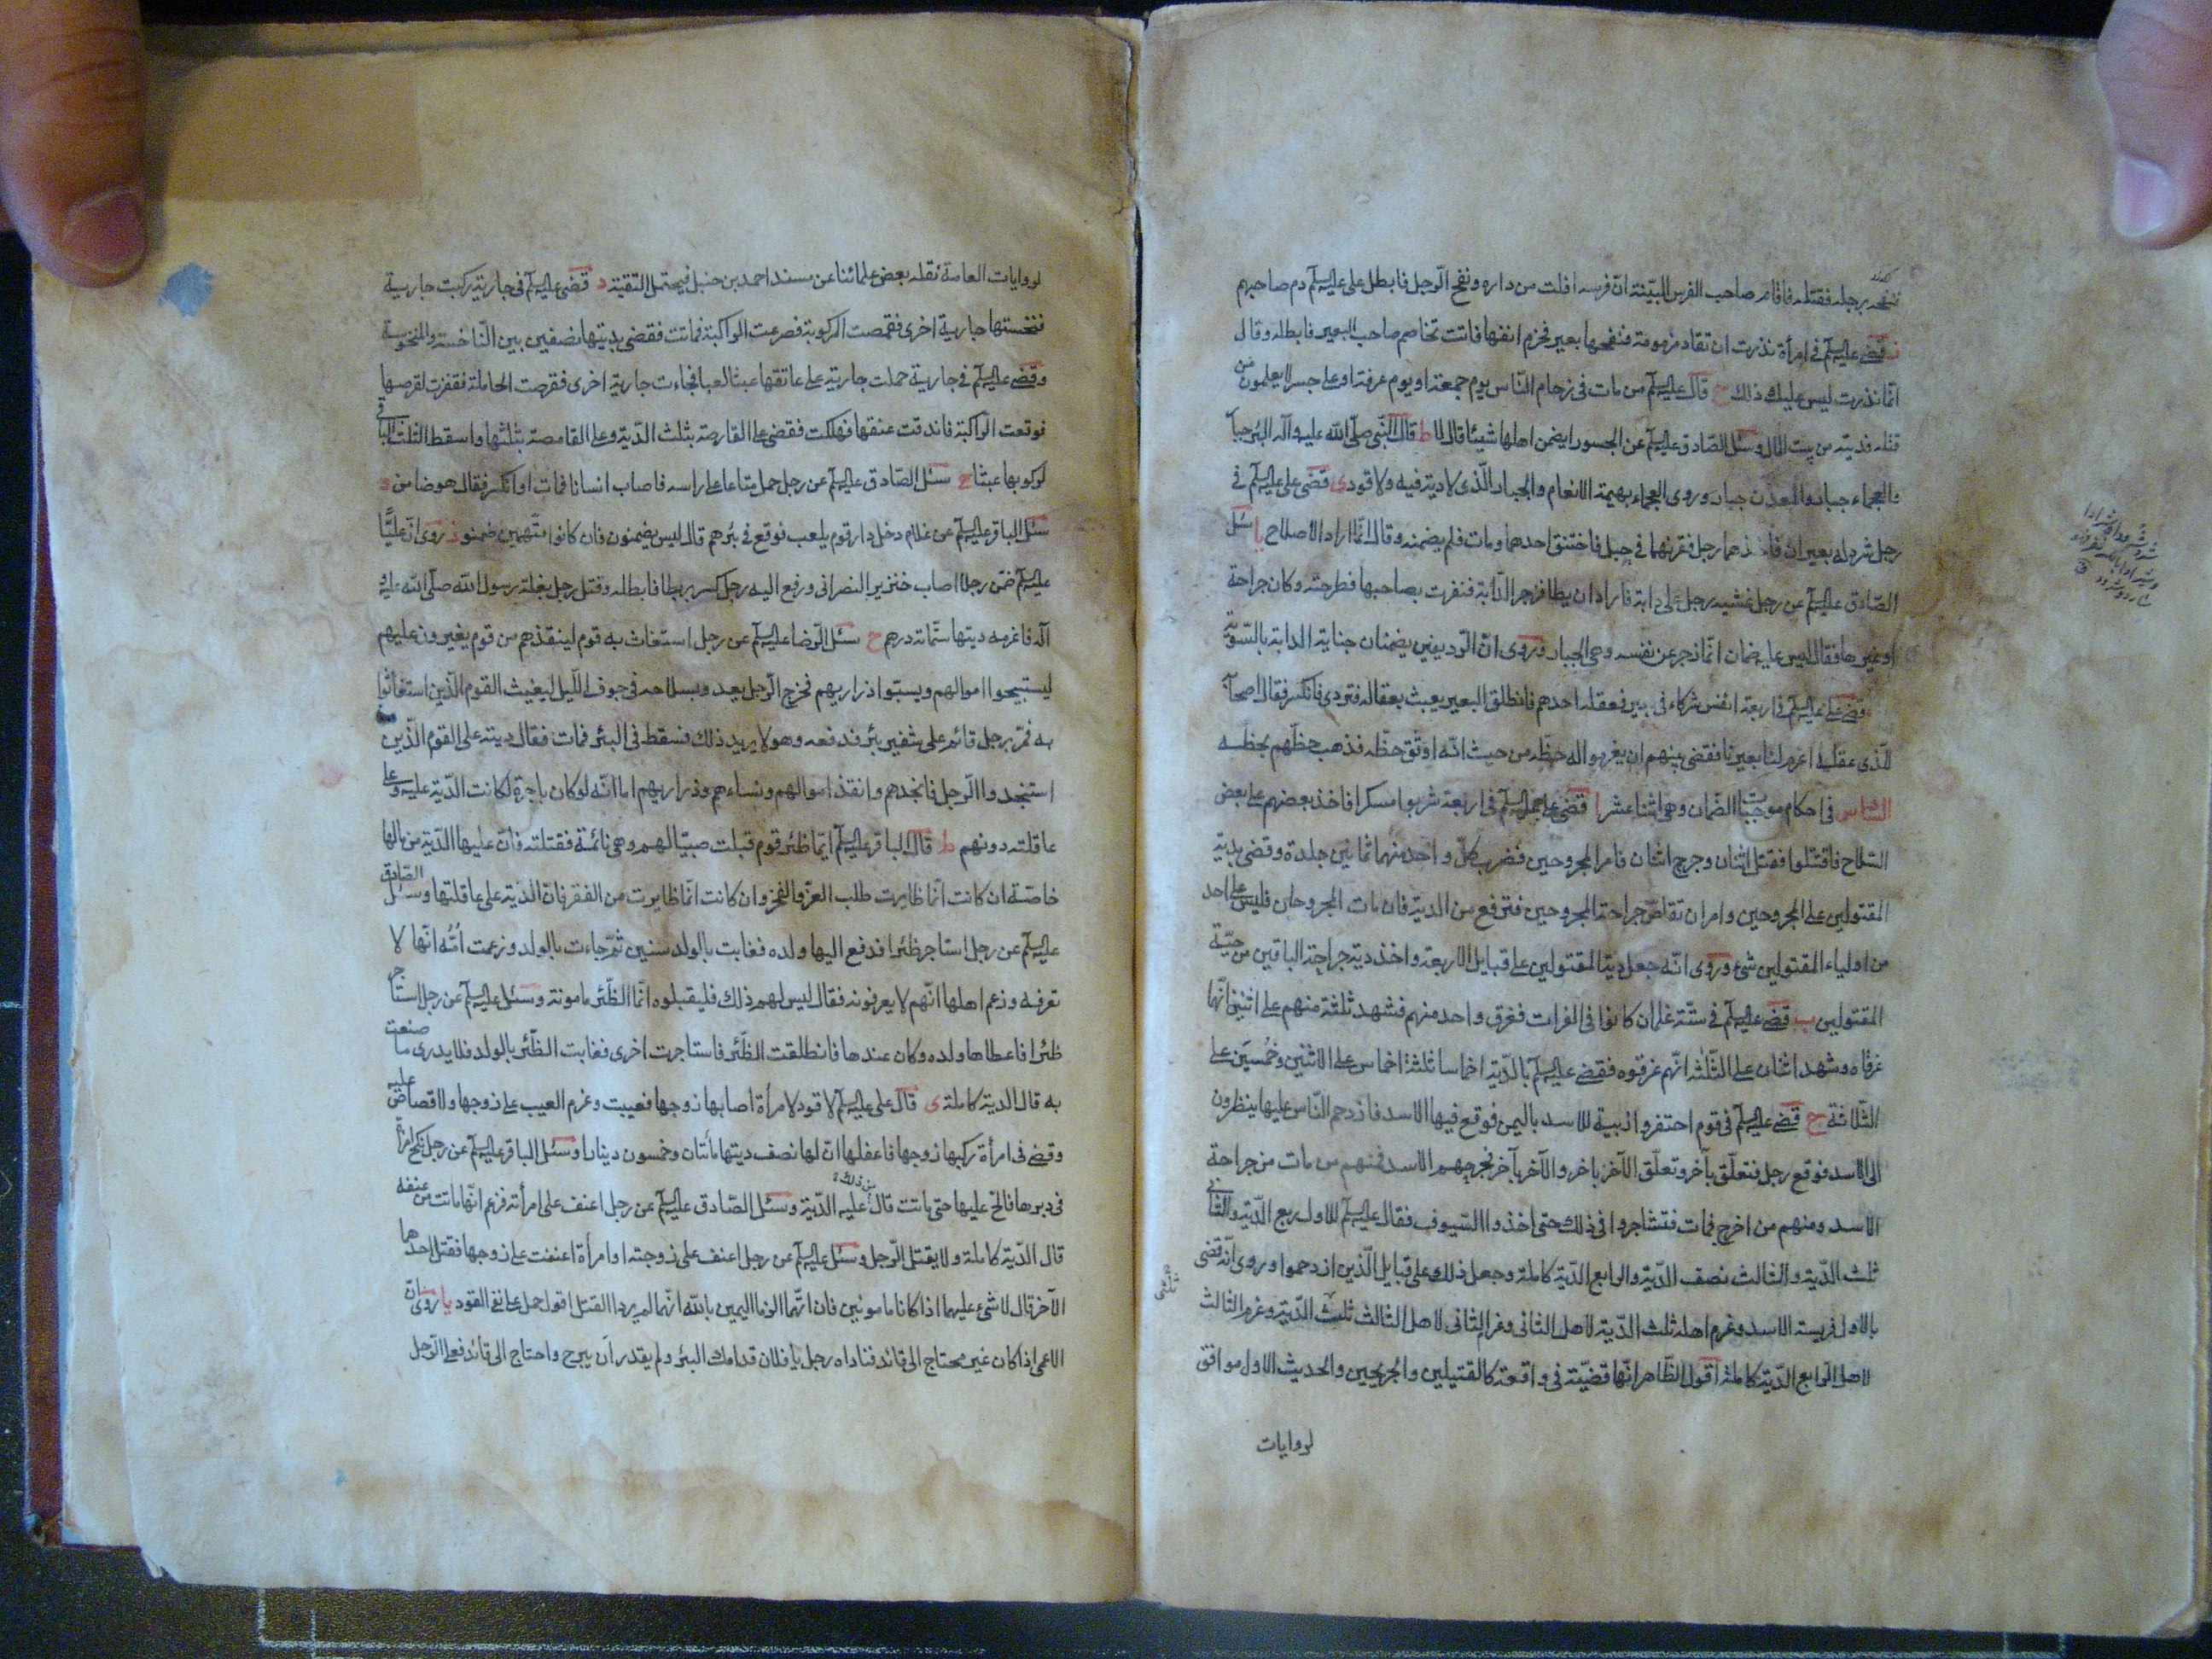 فنفحه برجله فقتله فاقام صاحب الفرس البيّنة انّ فرسه افلت من داره ونفح الرّجل فابطل على عليه السلم دم صاحبهم
قضى عليه السلم فى امرأة نذرت ان تقاد مزمومة فنفحها بعير فخرم انفها فاتت تخاصم صاحب البعير فابطله وقال
انّما نذرت ليس عليك ذلك ح قال عليه السلم من مات فى زحام النّاس يوم جمعة او يوم عرفة او على جسر لا يعلمون من
قتله فديته من بيت المال وسئل الصّادق عليه السلم عن الجسور ايضمن اهلها شيئا قال لا ط قال النّبى صلّى الله عليه وآله البئر جبار
والعجماء جبار والمعدن جبار وروى العجماء بهيمة الانعام والجبار الّذى لا دية فيه ولا قود ى قضى على عليه السلم فى
رجل شرد له بعيران فاخذهما رجل فقرنهما فى حبل فاختنق احدهما ومات فلم يضمنه وقال انّما اراد الاصلاح يا سئل
الصّادق عليه السلم عن رجل غشيه رجل على دابة فاراد ان يطا فزجر الدّابة فنفرت بصاحبها فطرحته وكان جراحة
او غيرها فقال ليس عليه ضمان انّما زجر عن نفسه وهى الجبار وروى انّ الرّديفين يضمنان جناية الدابة بالسّوية
قضى على عليه السلم فى اربعة انفس شركاء فى بعير فعقله احدهم فانطلق البعير يعبث بعقاله فتردى فانكسر فقال اصحابه
للّذى عقله اغرم لنا بعيرنا فقضى بينهم ان يغرموا له حظّه من حيث انّه اوثق حظّه فذهب حظّهم بحظّه
السّادس فى احكام موجبات الضّمان وهى اثنا عشر ا قضى على عليه السلم فى اربعة شربوا مسكرا فاخذ بعضهم على بعض
السّلاح فاقتتلوا فقتل اثنان وجرح اثنان فامر المجروحين فضرب كلّ واحد منهما ثمانين جلدة وقضى بدية
المقتولين على المجروحين وامر ان تقاصّ جراحة المجروحين فترفع من الدية فان مات المجروحان فليس على احد
من اولياء المقتولين شىء وروى انّه جعل دية المقتولين على قبايل الاربعة واخذ دية جراحة الباقين من دية
المقتولين ب قضى عليه السلم فى ستّة غلمان كانوا فى الفرات فغرق واحد منهم فشهد ثلثة منهم على اثنين انّهما
غرقاه وشهد اثنان على الثّلثة انّهم غرقوه فقضى عليه السلم بالدّية اخماسا ثلثة اخماس على الاثنين وخمسين على
الثّلاثة ج قضى عليه السلم فى قوم احتفروا زبية للاسد باليمن فوقع فيها الاسد فازدحم النّاس عليها ينظرون
الى الاسد فوقع رجل فتعلّق بآخر وتعلّق الآخر بآخر والآخر بآخر فجرحهم الاسد فمنهم من مات من جراحة
الاسد ومنهم من اخرج فمات فتشاجروا فى ذلك حتى اخذوا السّيوف فقال عليه السلم للاول ربع الدّية والثانى
ثلث الدّية والثالث نصف الدّية والرابع الدّية كاملة وجعل ذلك على قبايل الّذين ازدحموا وروى انّه قضى
بالاول فريسة الاسد وغرم اهله ثلث الدّية لاهل الثانى وغرم الثانى لاهل الثالث ثلث الدّية وغرم الثالث
ثلثى
لاهل الرابع الدّية كاملة اقول الظّاهر انّها قضيّة فى واقعة كالقتيلين والجريحين والحديث الاول موافق
لروايات
لروايات العامة نقله بعض علمائنا عن مسند احمد بن حنبل فيحتمل التقيّة د قضى عليه السلم فى جارية ركبت جارية
فنخستها جارية اخرى فقمصت المركوبة فصرعت الراكبة فماتت فقضى بديتها نصفين بين النّاخسة والمنخوسة
وقضى عليه السلم فى جارية حملت جارية على عاتقها عبثا لعبا فجاءت جارية اخرى فقرصت الحاملة فقفزت لقرصها
فوقعت الراكبة فاندقت عنقها فهلكت فقضى على القارصة بثلث الدّية وعلى القامصة بثلثها واسقط الثلث الباقى
لركوبها عبثا ه سئل الصّادق عليه السلم عن رجل حمل متاعا على راسه فاصاب انسانا فمات او انكسر فقال هو ضامن و
سئل الباقر عليه السلم عن غلام دخل دار قوم يلعب فوقع فى بئرهم قال ليس يضمنون فان كانوا متّهمين ضمنوا ز روى انّ عليّا
عليه السلم ضمّن رجلا اصاب خنزير النصرانى ورفع اليه رجل كسر بربطا فابطله وقتل رجل بغلة رسول الله صلّى الله عليه و
آله فاغرمه ديتها ستّمائة درهم ح سئل الرّضا عليه السلم عن رجل استغاث به قوم لينقذهم من قوم يغيرون عليهم
ليستبيحوا اموالهم ويسبوا ذراريهم فخرج الرّجل يعدو بسلاحه فى جوف اللّيل ليغيث القوم الّذين استغاثوا
به فمرّ برجل قائم على شفير بئر فدفعه وهو لا يريد ذلك فسقط فى البئر فمات فقال ديته على القوم الّذين
استنجدوا الرّجل فانجدهم وانقذ اموالهم ونساءهم وذراريهم اما انّه لو كان باجرة لكانت الدّية عليه وعلى
عاقلته دونهم ط قال الباقر عليه السلم ايّما ظئر قوم قبلت صبيّا لهم وهى نائمة فقتلته فانّ عليها الدّية من مالها
خاصّة ان كانت انّما ظايرت طلب العزّ والفخر وان كانت انّما ظايرت من الفقر فانّ الدّية على عاقلتها وسئل الصّادق
عليه السلم عن رجل استاجر ظئرا فدفع اليها ولده فغابت بالولد سنين ثمّ جاءت بالولد وزعمت امّه انّها لا
تعرفه وزعم اهلها انّهم لا يعرفونه فقال ليس لهم ذلك فليقبلوه انّما الظّئر مامونة وسئل عليه السلم عن رجل استاجر
ظئرا فاعطاها ولده وكان عندها فانطلقت الظّئر فاستاجرت اخرى فغابت الظّئر بالولد فلا يدرى ما صنعت
به قال الدية كاملة ى قال على عليه السلم لا قود لامرأة اصابها زوجها فعيبت وغرم العيب على زوجها ولا قصاص عليه
وقضى فى امرأة ركبها زوجها فاعفلها انّ لها نصف ديتها مأتان وخمسون دينارا وسئل الباقر عليه السلم عن رجل نكح امرأة
فى دبرها فالحّ عليها حتى ماتت من ذلك قال عليه الدّية وسئل الصّادق عليه السلم عن رجل اعنف على امرأته فزعم انّها ماتت من عنفه
قال الدّية كاملة ولا يقتل الرّجل وسئل عليه السلم عن رجل اعنف على زوجته او امرأة اعنفت على زوجها فقتل احدهما
الآخر قال لا شىء عليهما اذا كانا مامونين فان اتّهما الزما اليمين بالله انّهما لم يردا القتل اقول حمل على نفى القود يا روى ان
الاعمى اذا كان غير محتاج الى قائد فناداه رجل يا فلان قدامك البئر ولم يقدر ان يبرح واحتاج الى قائد فعلى الرّجل